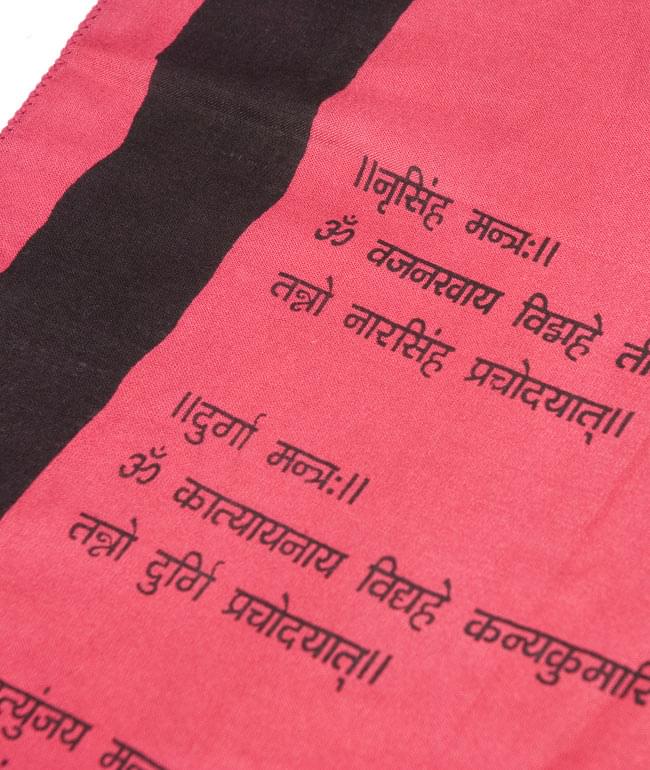 ॥नृसिंह मन्त्रः॥
ॐ वजनखाय विद्महे
तन्नो नारसिंह प्रचोदयात्॥
॥दुर्गा मन्त्रः॥
ॐ कात्यायनाय विद्यहे कन्यकुमारि
तन्नो दुर्गि प्रचोदयात्॥